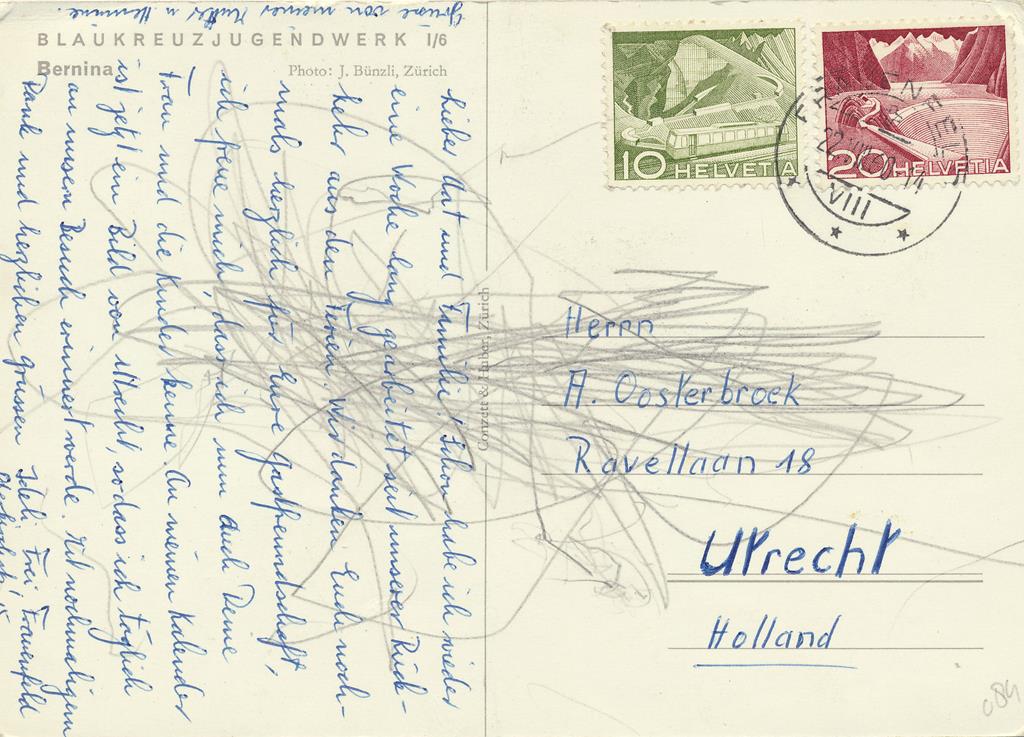 BLAUKREUZJUGENDWERK 1/6
Bernina
Photo: J. Bünzli, Zürich
Conzett & Huber, Zürich
10 HELVETIA
20 HELVETIA
VIII
Herrn
A. Oosterbroek
Ravellaan 18
Utrecht
Holland
lieber Art und Familie! Schon habe ich wieder
eine Woche lang gearbeitet seit unserer Rück-
kehr aus den Ferien. Wir danken Euch noch-
mals herzlich für Eure Gastfreundschaft,
ich freue mich, dass ich nun auch Deine
Frau und die Kinder kenne. An meinem Kalender
ist jetzt ein Bild von Utrecht, sodass ich täglich
an unsern Besuch erinnert werde. Mit nochmaligem
Dank und herzlichen Grüssen Frei, Frauenfeld
Grüsse von meiner Mutter u.
084